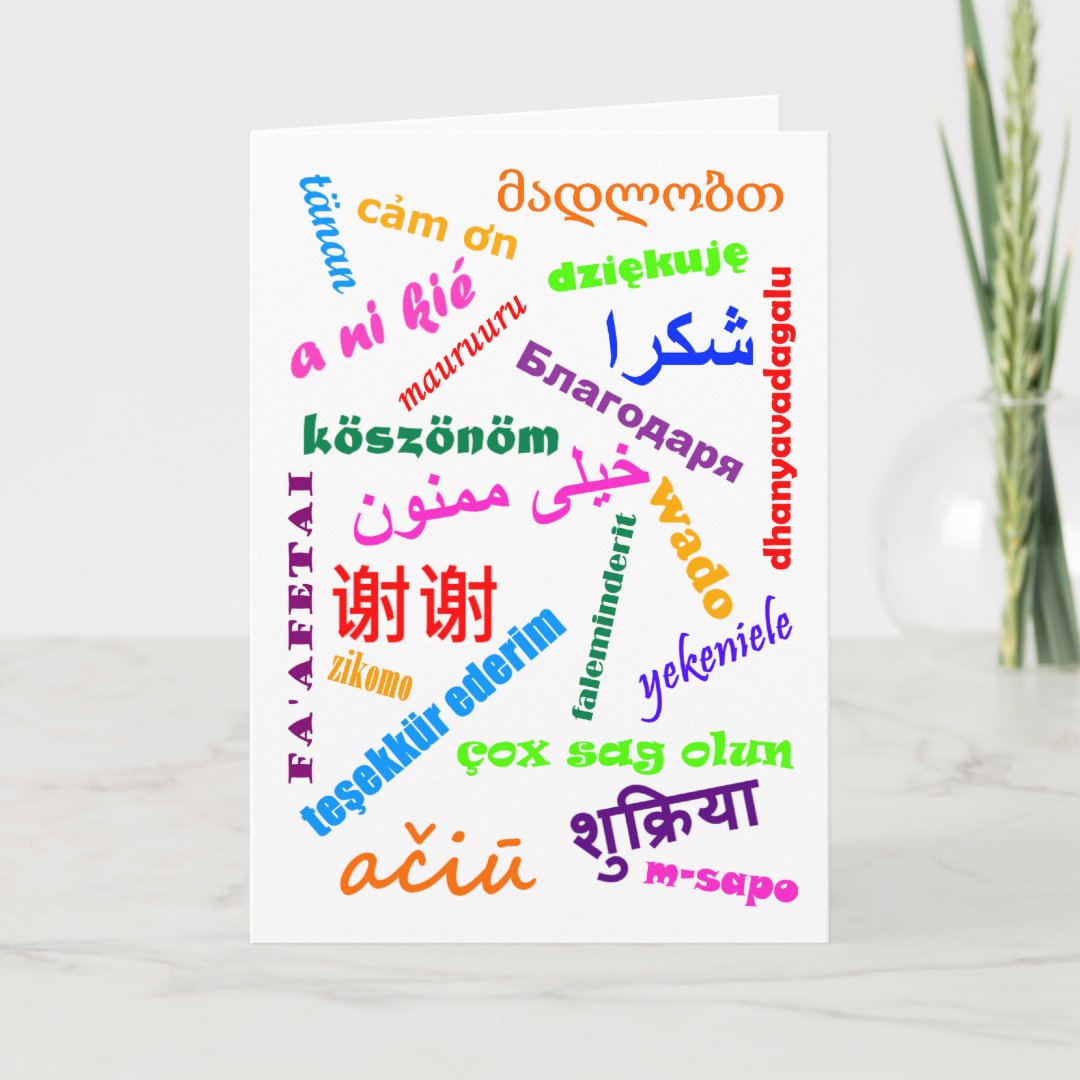 tänan
cảm ơn
მადლობთ
dziękuję
a ni kié
mauruuru
شكرا
Благодаря
dhanyavadagalu
köszönöm
خیلی ممنون
FA'AFETAI
wado
faleminderit
谢谢
zikomo
teşekkür ederim
yekeniele
çox sag olun
शुक्रिया
ačiū
m-sapo